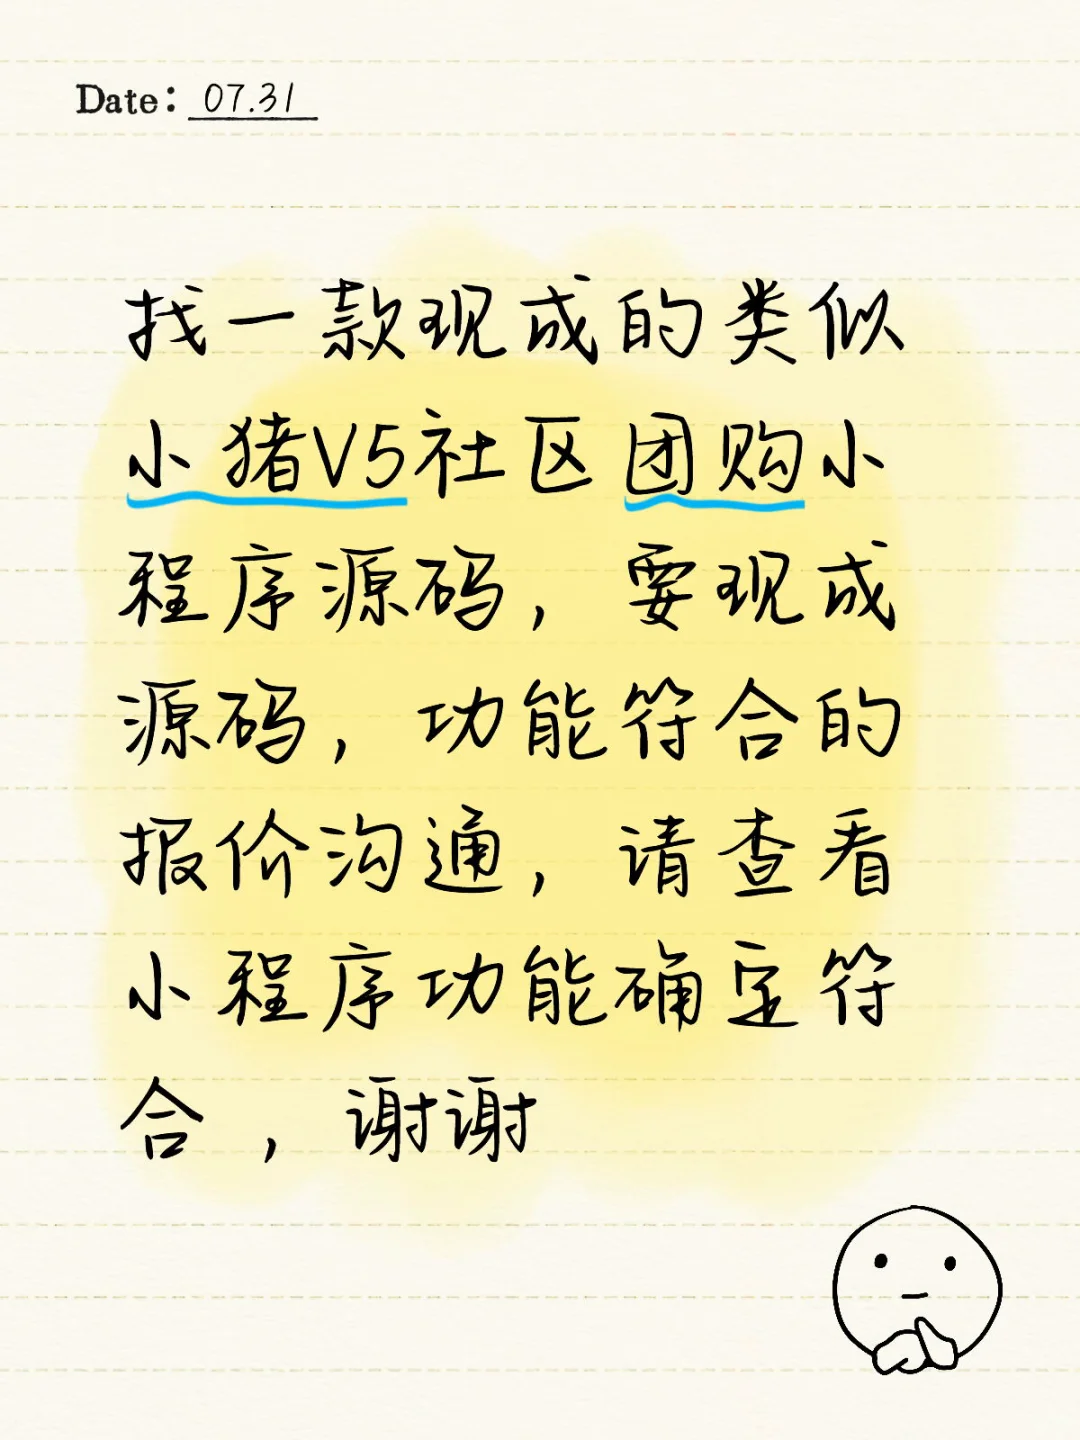 Date: 07.31
找一款现成的类似
小猪V5社区团购小
程序源码，要现成
源码，功能符合的
报价沟通，请查看
小程序功能确定符
合，谢谢